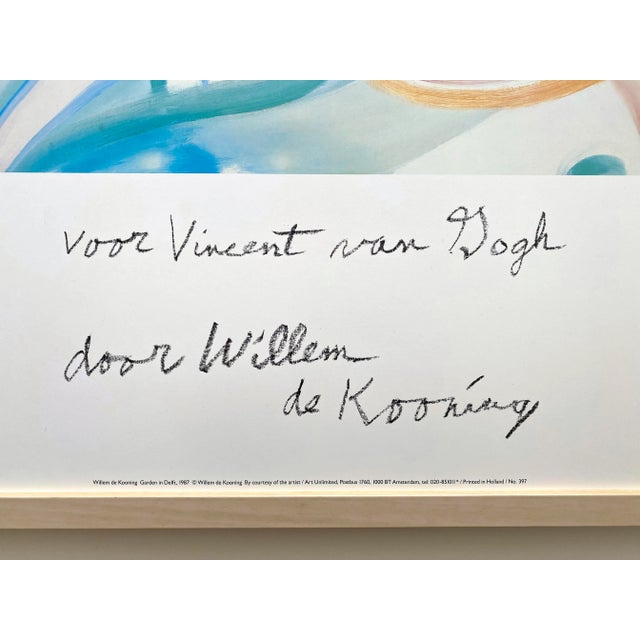 voor Vincent van Gogh
door Willem
de Kooning
Willem de Kooning Garden in Delft, 1987 © Willem de Kooning. By courtesy of the artist / Art Unlimited, Postbus 1760, 1000 BT Amsterdam, tel: 020-851011* / Printed in Holland / No. 397